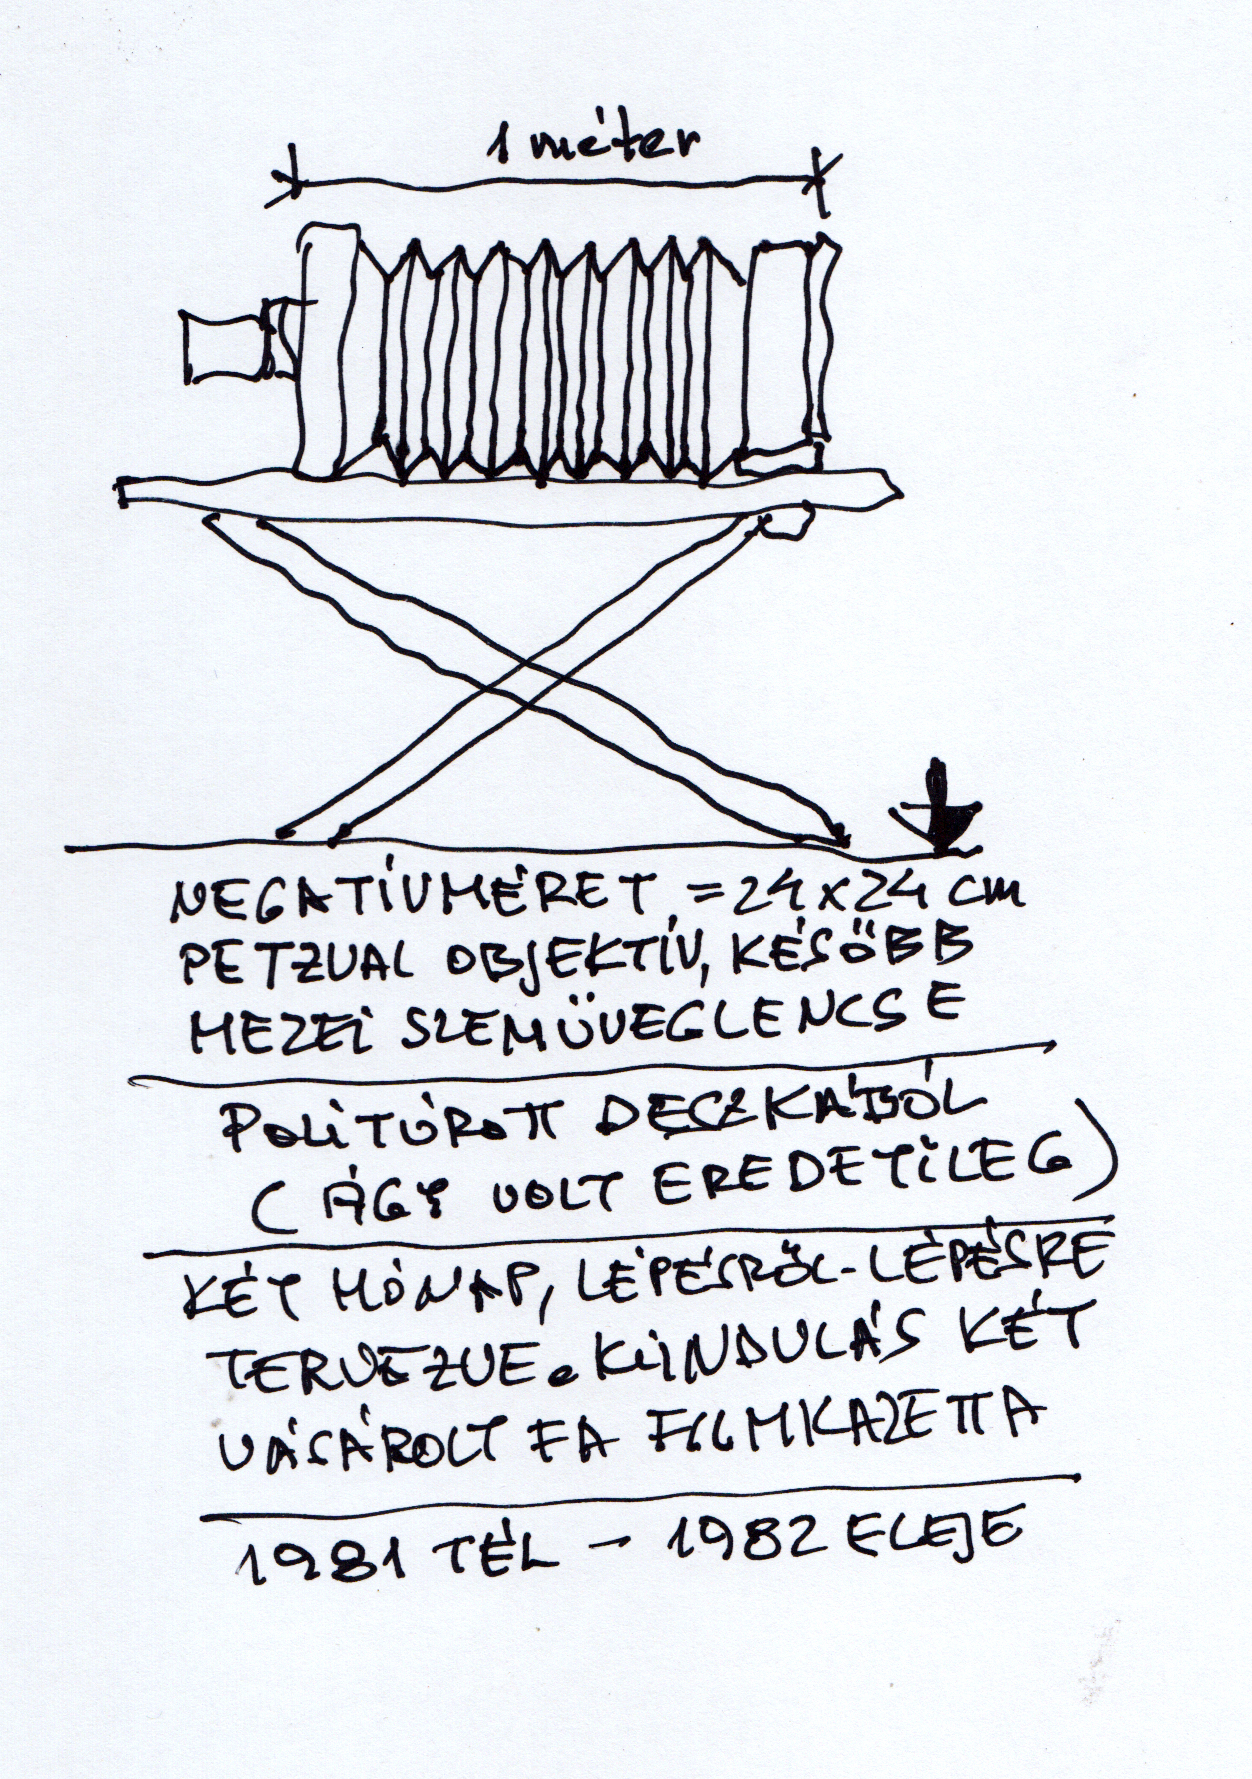 1 méter
NEGATÍVMÉRET = 24 x 24 cm
PETZVAL OBJEKTÍV, KÉSŐBB
MEZEI SZEMÜVEGLENCSE
POLITÚROTT DESZKÁBÓL
(ÁGY VOLT EREDETILEG)
KÉT HÓNAP, LÉPÉSRŐL-LÉPÉSRE
TERVEZVE. KIINDULÁS KÉT
VÁSÁROLT FA FILMKAZETTA
1981 TÉL - 1982 ELEJE